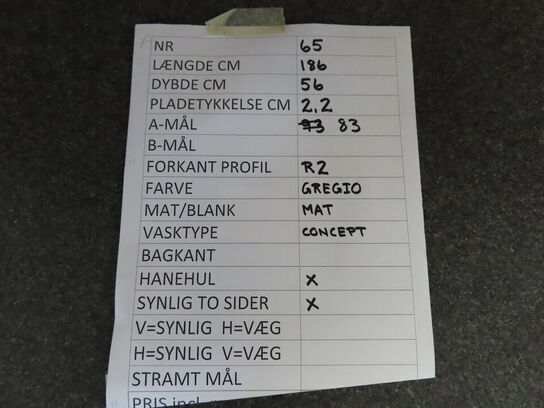 NR 65
LÆNGDE CM 186
DYBDE CM 56
PLADETYKKELSE CM 2,2
A-MÅL 93 83
B-MÅL
FORKANT PROFIL R2
FARVE GREGIO
MAT/BLANK MAT
VASKTYPE CONCEPT
BAGKANT
HANEHUL X
SYNLIG TO SIDER X
V=SYNLIG H=VÆG
H=SYNLIG V=VÆG
STRAMT MÅL
PRIS incl.